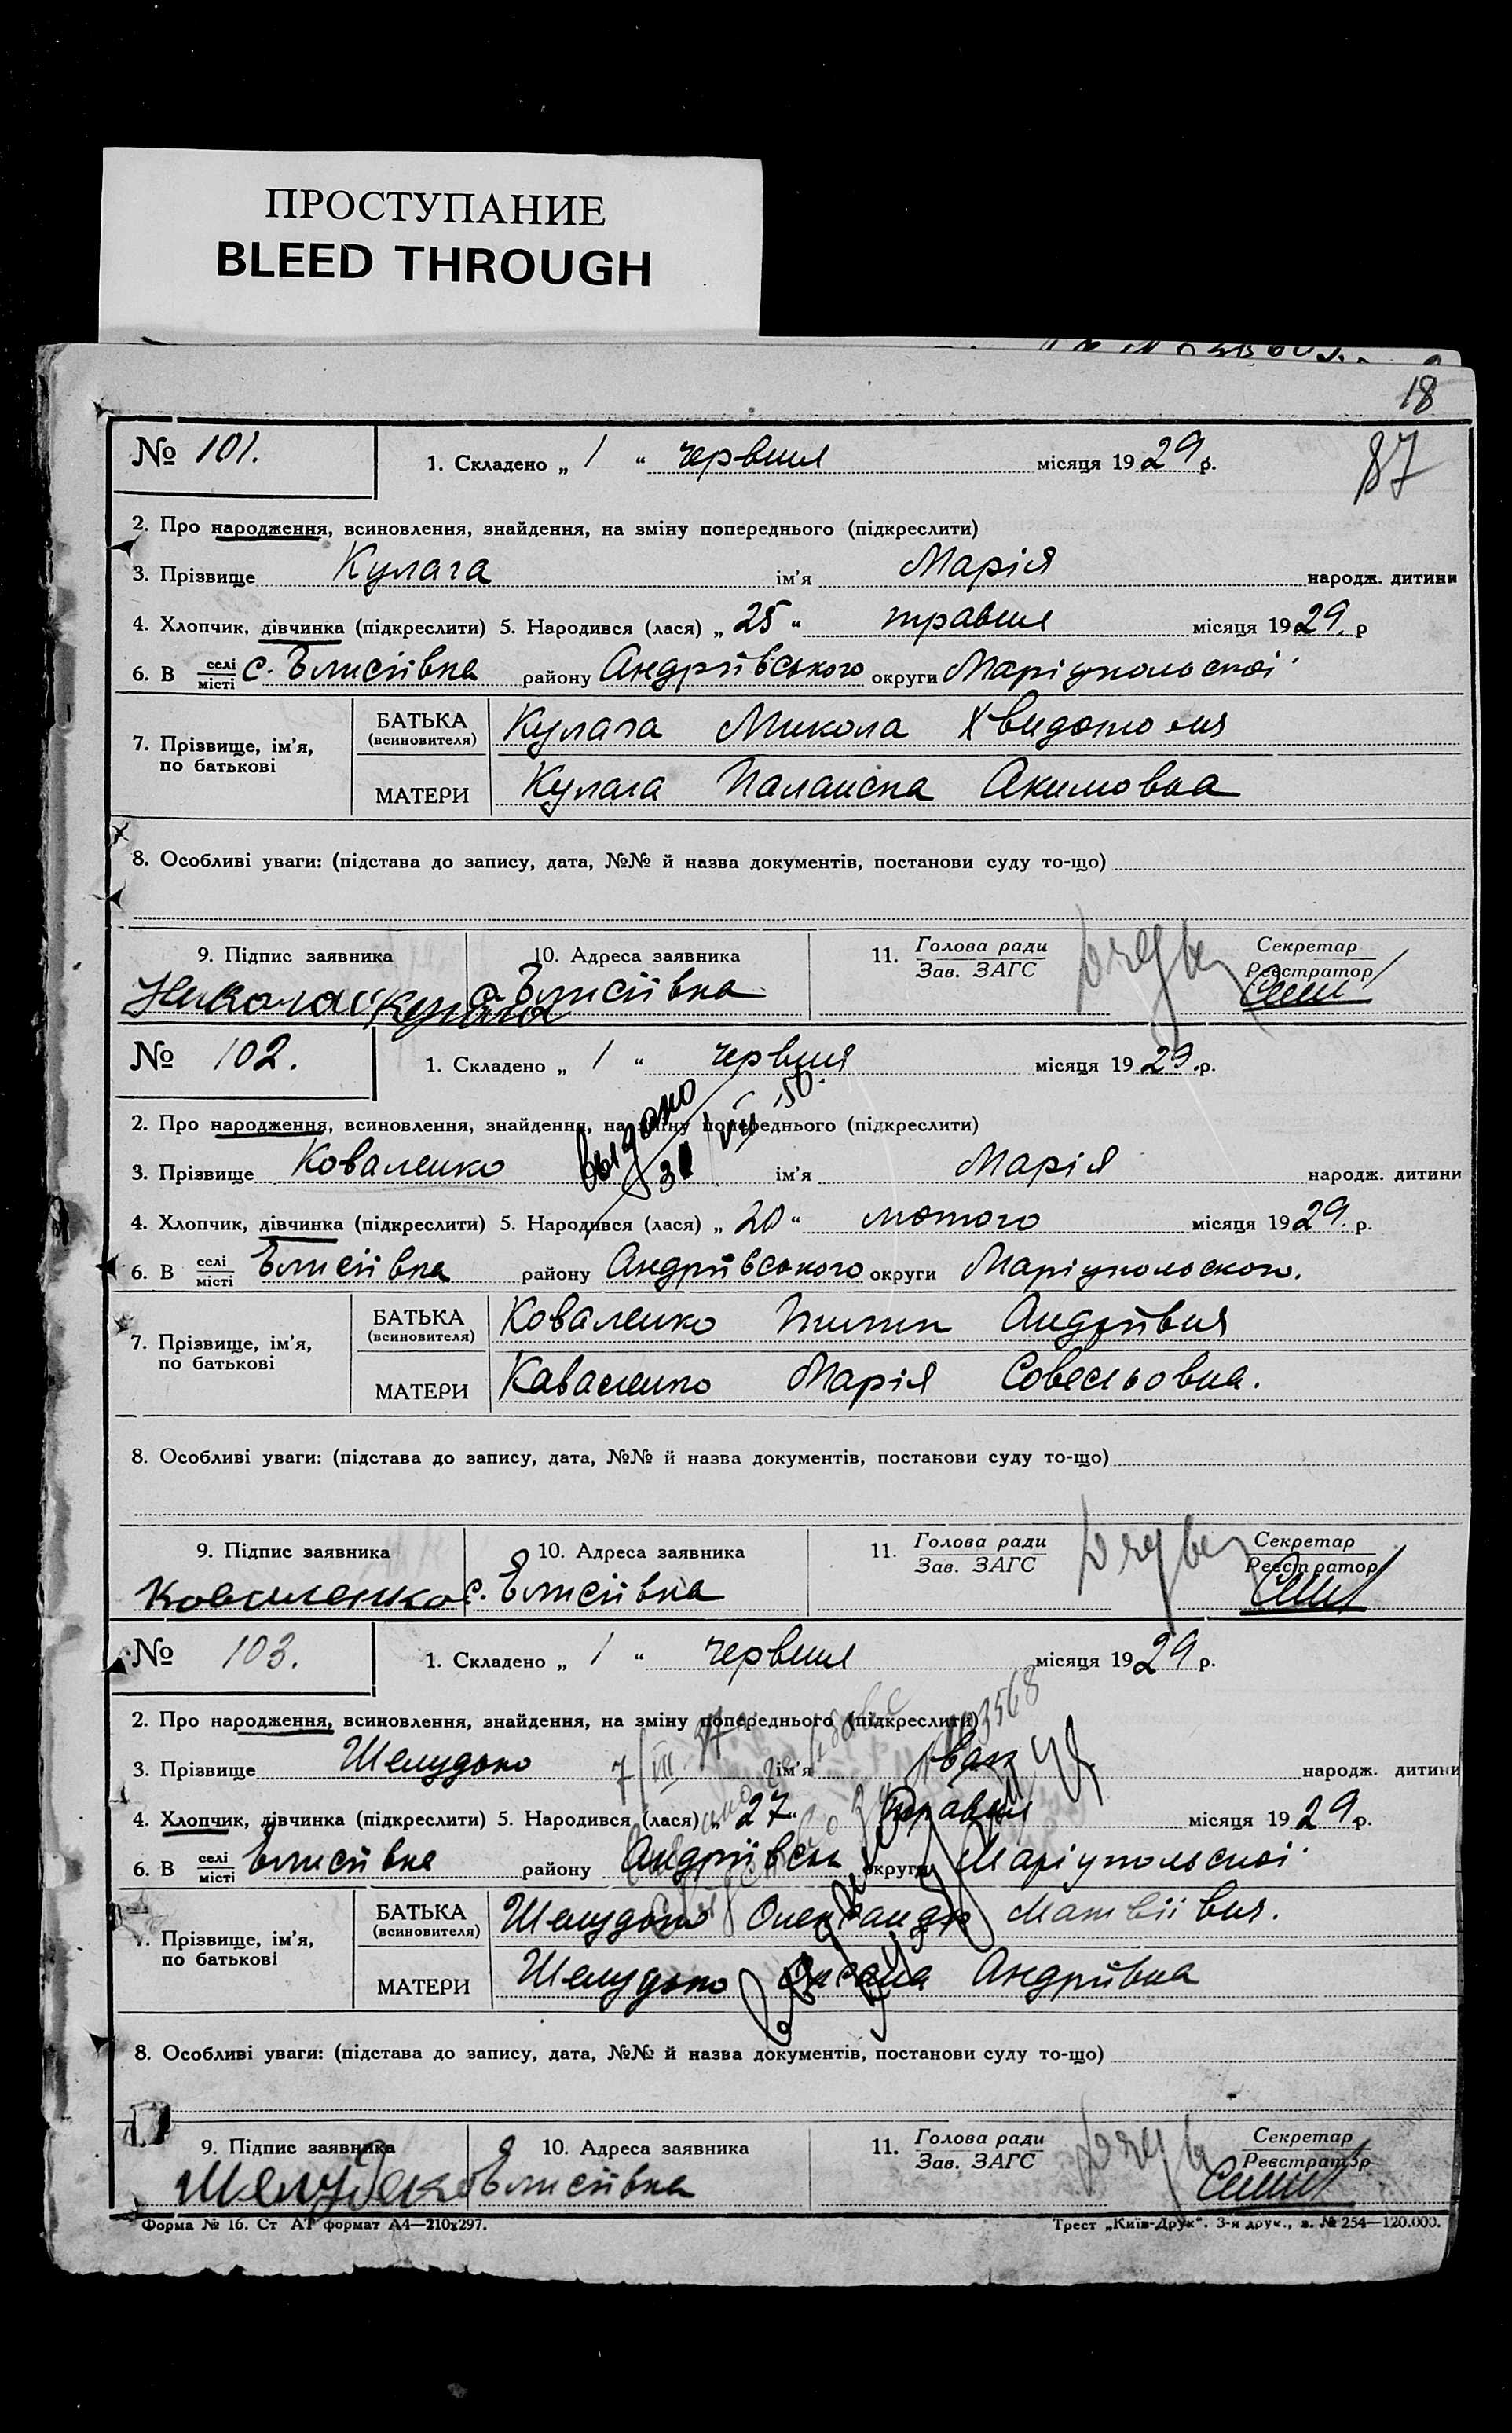 ПРОСТУПАНИЕ
BLEED THROUGH
18
87
№ 101. 1. Складено „ 1 “ червня місяця 1929 р.
2. Про народження, всиновлення, знайдення, на зміну попереднього (підкреслити)
3. Прізвище Кулага ім'я Марія народж. дитини
4. Хлопчик, дівчинка (підкреслити) 5. Народився (лася) „ 25 “ травня місяця 1929. р
6. В селі місті с. Елисіївка району Андріївського округи Маріупольскої
7. Прізвище, ім'я, по батькові
БАТЬКА (всиновителя) Кулага Микола
МАТЕРИ Кулага Палаиска Акимовна
8. Особливі уваги: (підстава до запису, дата, №№ й назва документів, постанови суду то-що)
9. Підпис заявника 10. Адреса заявника 11. Голова ради Зав. ЗАГС Секретар Реєстратор
Николай Кулага с. Елисіївка
№ 102. 1. Складено „ 1 “ червня місяця 1929. р.
2. Про народження, всиновлення, знайдення, на зміну попереднього (підкреслити)
выдано 31/VII 50.
3. Прізвище Коваленко ім'я Марія народж. дитини
4. Хлопчик, дівчинка (підкреслити) 5. Народився (лася) „ 20 “ лютого місяця 1929. р.
6. В селі місті Елисіївка району Андріївського округи Маріупольского.
7. Прізвище, ім'я, по батькові
БАТЬКА (всиновителя) Коваленко Пилип Андрійвия
МАТЕРИ Каваленко Марія
8. Особливі уваги: (підстава до запису, дата, №№ й назва документів, постанови суду то-що)
9. Підпис заявника 10. Адреса заявника 11. Голова ради Зав. ЗАГС Секретар Реєстратор
Коваленко с. Елисіївка
№ 103. 1. Складено „ 1 “ червня місяця 1929 р.
2. Про народження, всиновлення, знайдення, на зміну попереднього (підкреслити)
3. Прізвище Шелудько ім'я Іван народж. дитини
4. Хлопчик, дівчинка (підкреслити) 5. Народився (лася) „ 27 “ травня місяця 1929 р.
6. В селі місті Елисіївка району Андріївськ округи Маріупольскої
7. Прізвище, ім'я, по батькові
БАТЬКА (всиновителя) Шелудько Олександр Матвіївия.
МАТЕРИ Шелудько Оксана Андріївна
8. Особливі уваги: (підстава до запису, дата, №№ й назва документів, постанови суду то-що)
9. Підпис заявника 10. Адреса заявника 11. Голова ради Зав. ЗАГС Секретар Реєстратор
Шелудько Елисіївка
Форма № 16. Ст АТ формат А4—210x297. Трест „Київ-Друк“. 3-я друк., з. № 254—120.000.